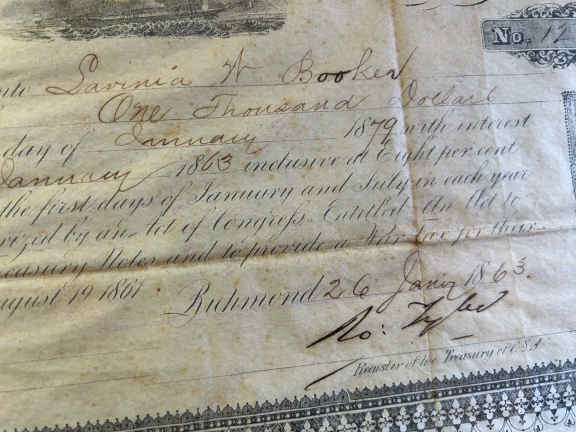 No. 12
Lavinia W Booker
One Thousand Dollars
day of January 1879 with interest
January 1863 inclusive at Eight per cent
the first days of January and July in each year
by an Act of Congress Entitled An Act to
Treasury Notes and to provide a War tax for their
August 19 1861 Richmond 26 Jany 1863.
Ro: Tyler
Register of the Treasury of C.S.A